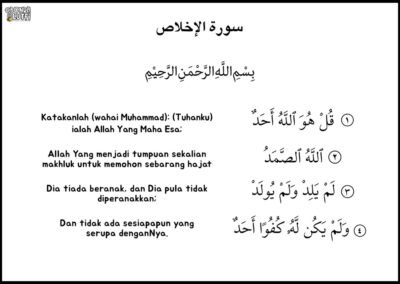 سورة الإخلاص
بِسْمِ اللَّهِ الرَّحْمَنِ الرَّحِيْمِ
Katakanlah (wahai Muhammad): (Tuhanku)
ialah Allah Yang Maha Esa;
١ قُلْ هُوَ ٱللَّهُ أَحَدٌ
Allah Yang menjadi tumpuan sekalian
makhluk untuk memohon sebarang hajat
٢ ٱللَّهُ ٱلصَّمَدُ
Dia tiada beranak, dan Dia pula tidak
diperanakkan;
٣ لَمْ يَلِدْ وَلَمْ يُولَدْ
Dan tidak ada sesiapapun yang
serupa denganNya.
٤ وَلَمْ يَكُن لَّهُۥ كُفُوًا أَحَدٌ